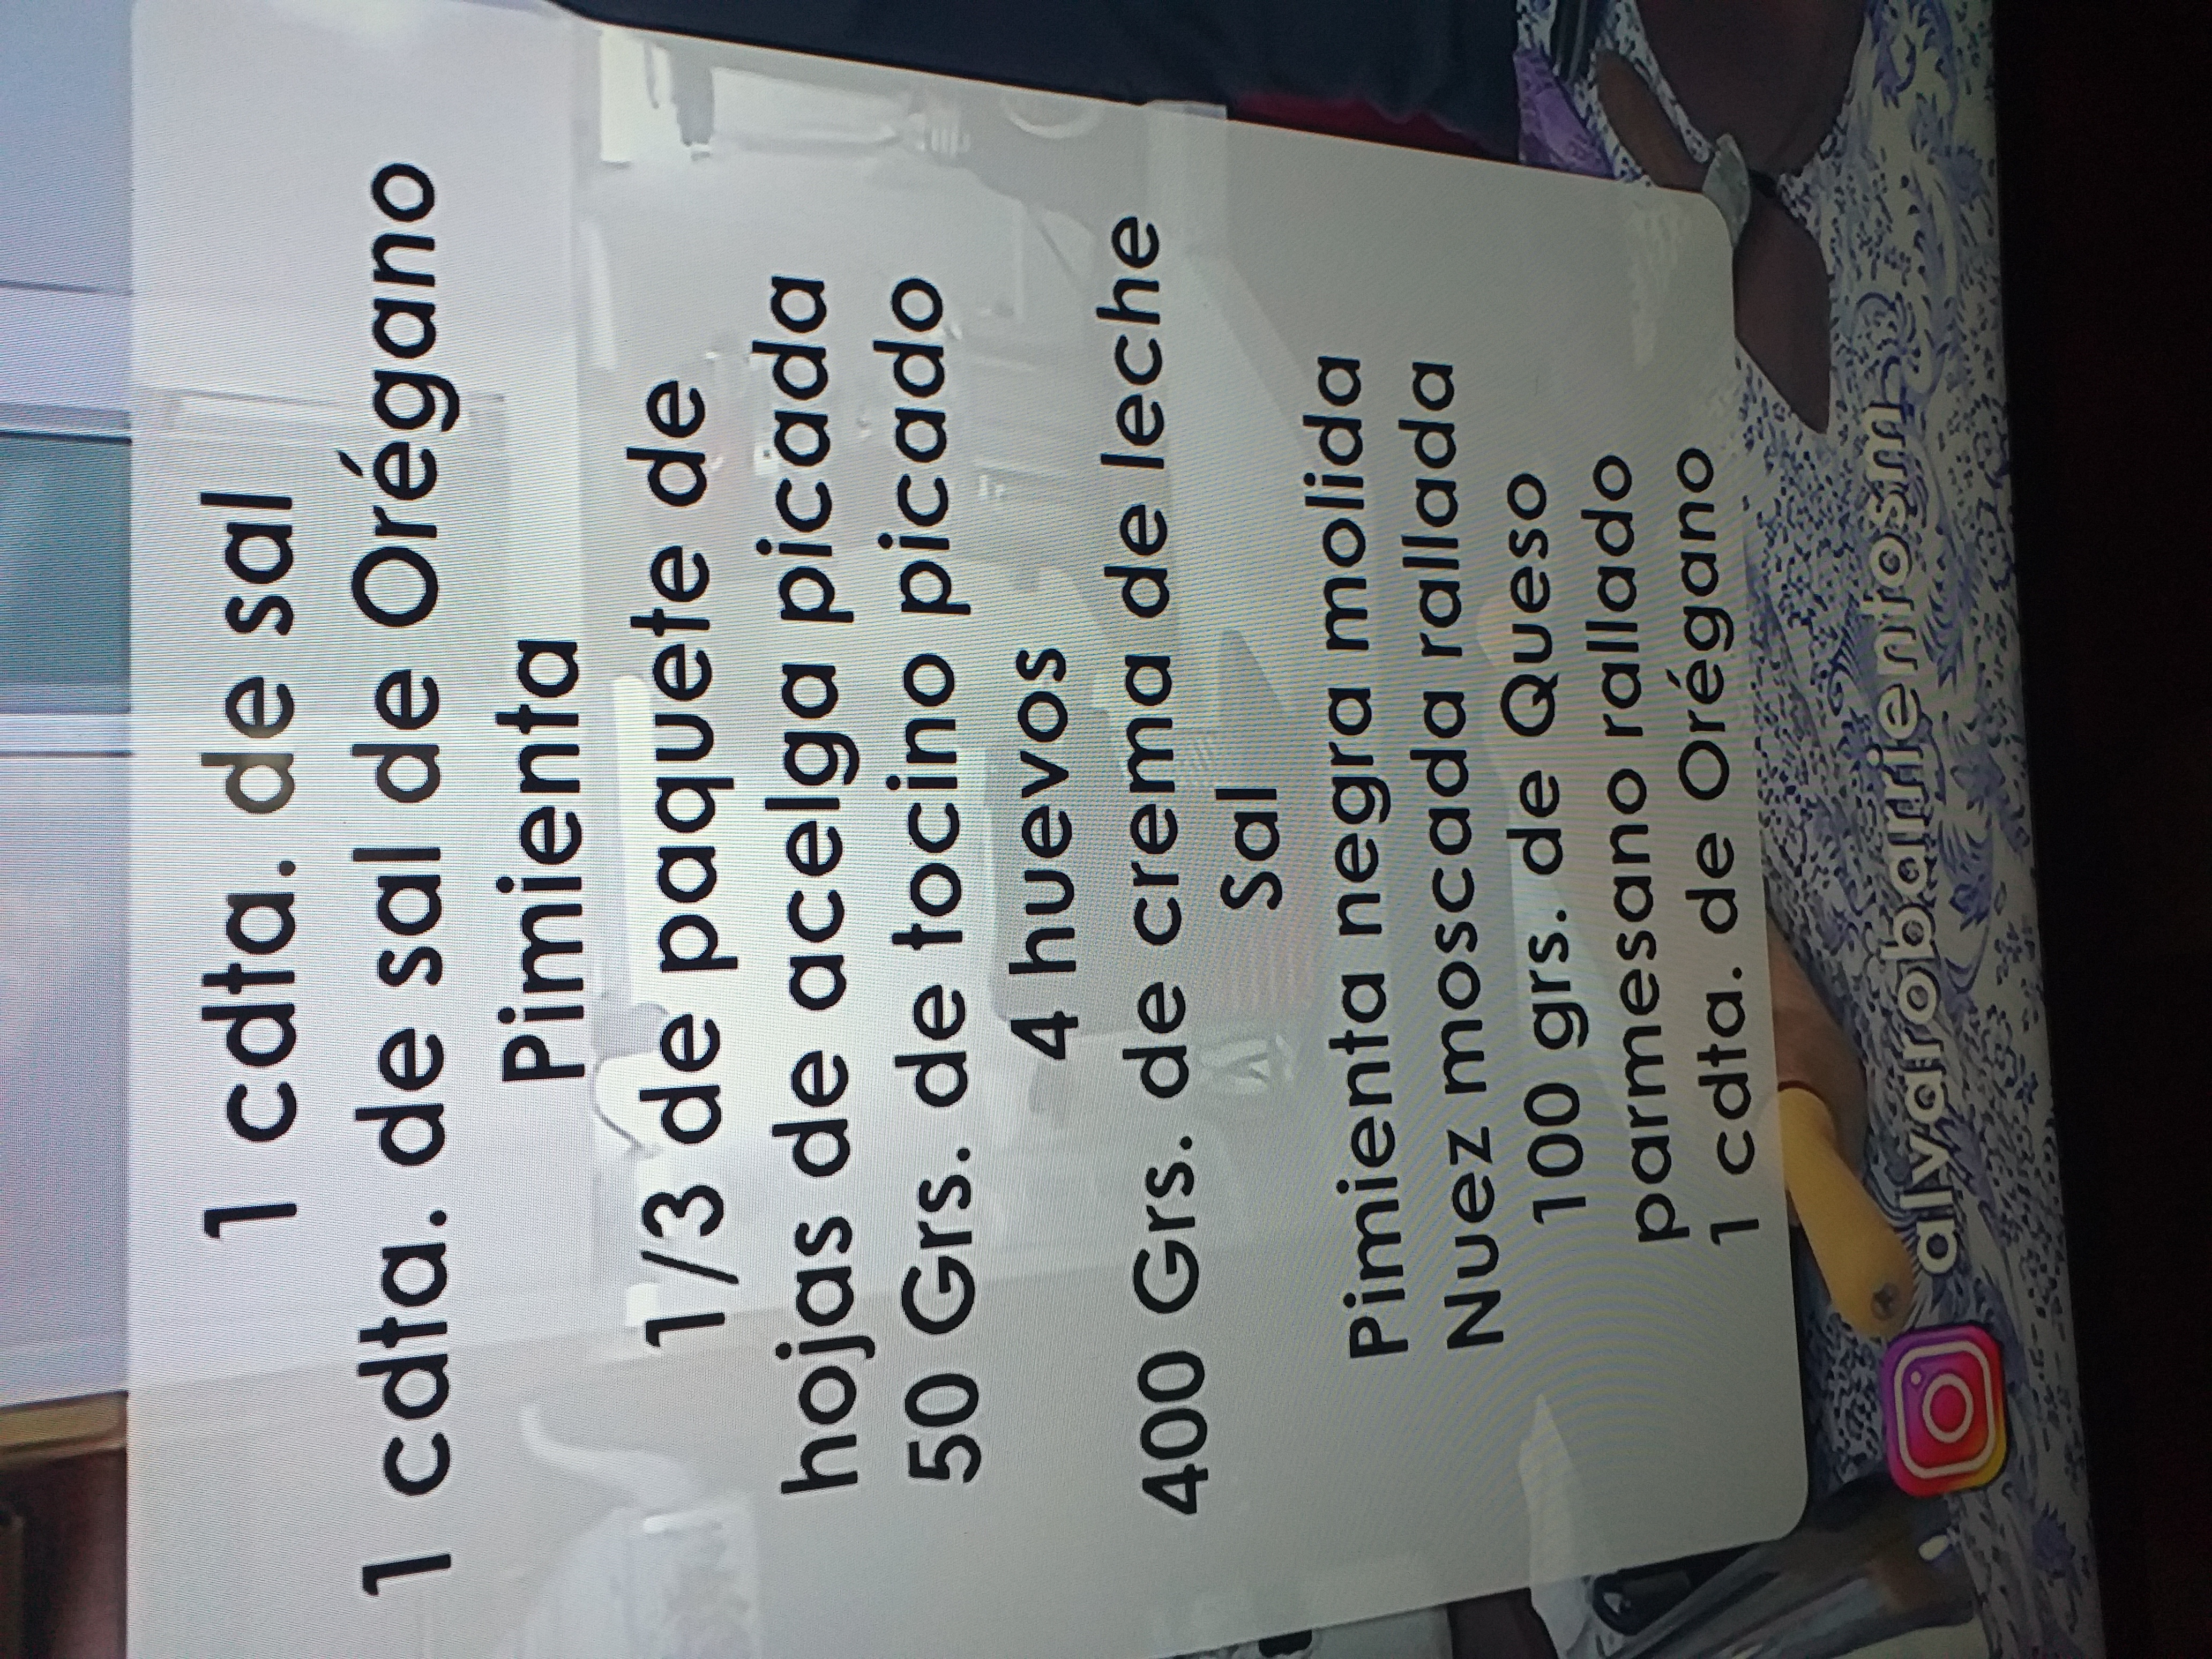 1 cdta. de sal
1 cdta. de sal de Orégano
Pimienta
1/3 de paquete de
hojas de acelga picada
50 Grs. de tocino picado
4 huevos
400 Grs. de crema de leche
Sal
Pimienta negra molida
Nuez moscada rallada
100 grs. de Queso
parmesano rallado
1 cdta. de Orégano
alvarobarrientosm